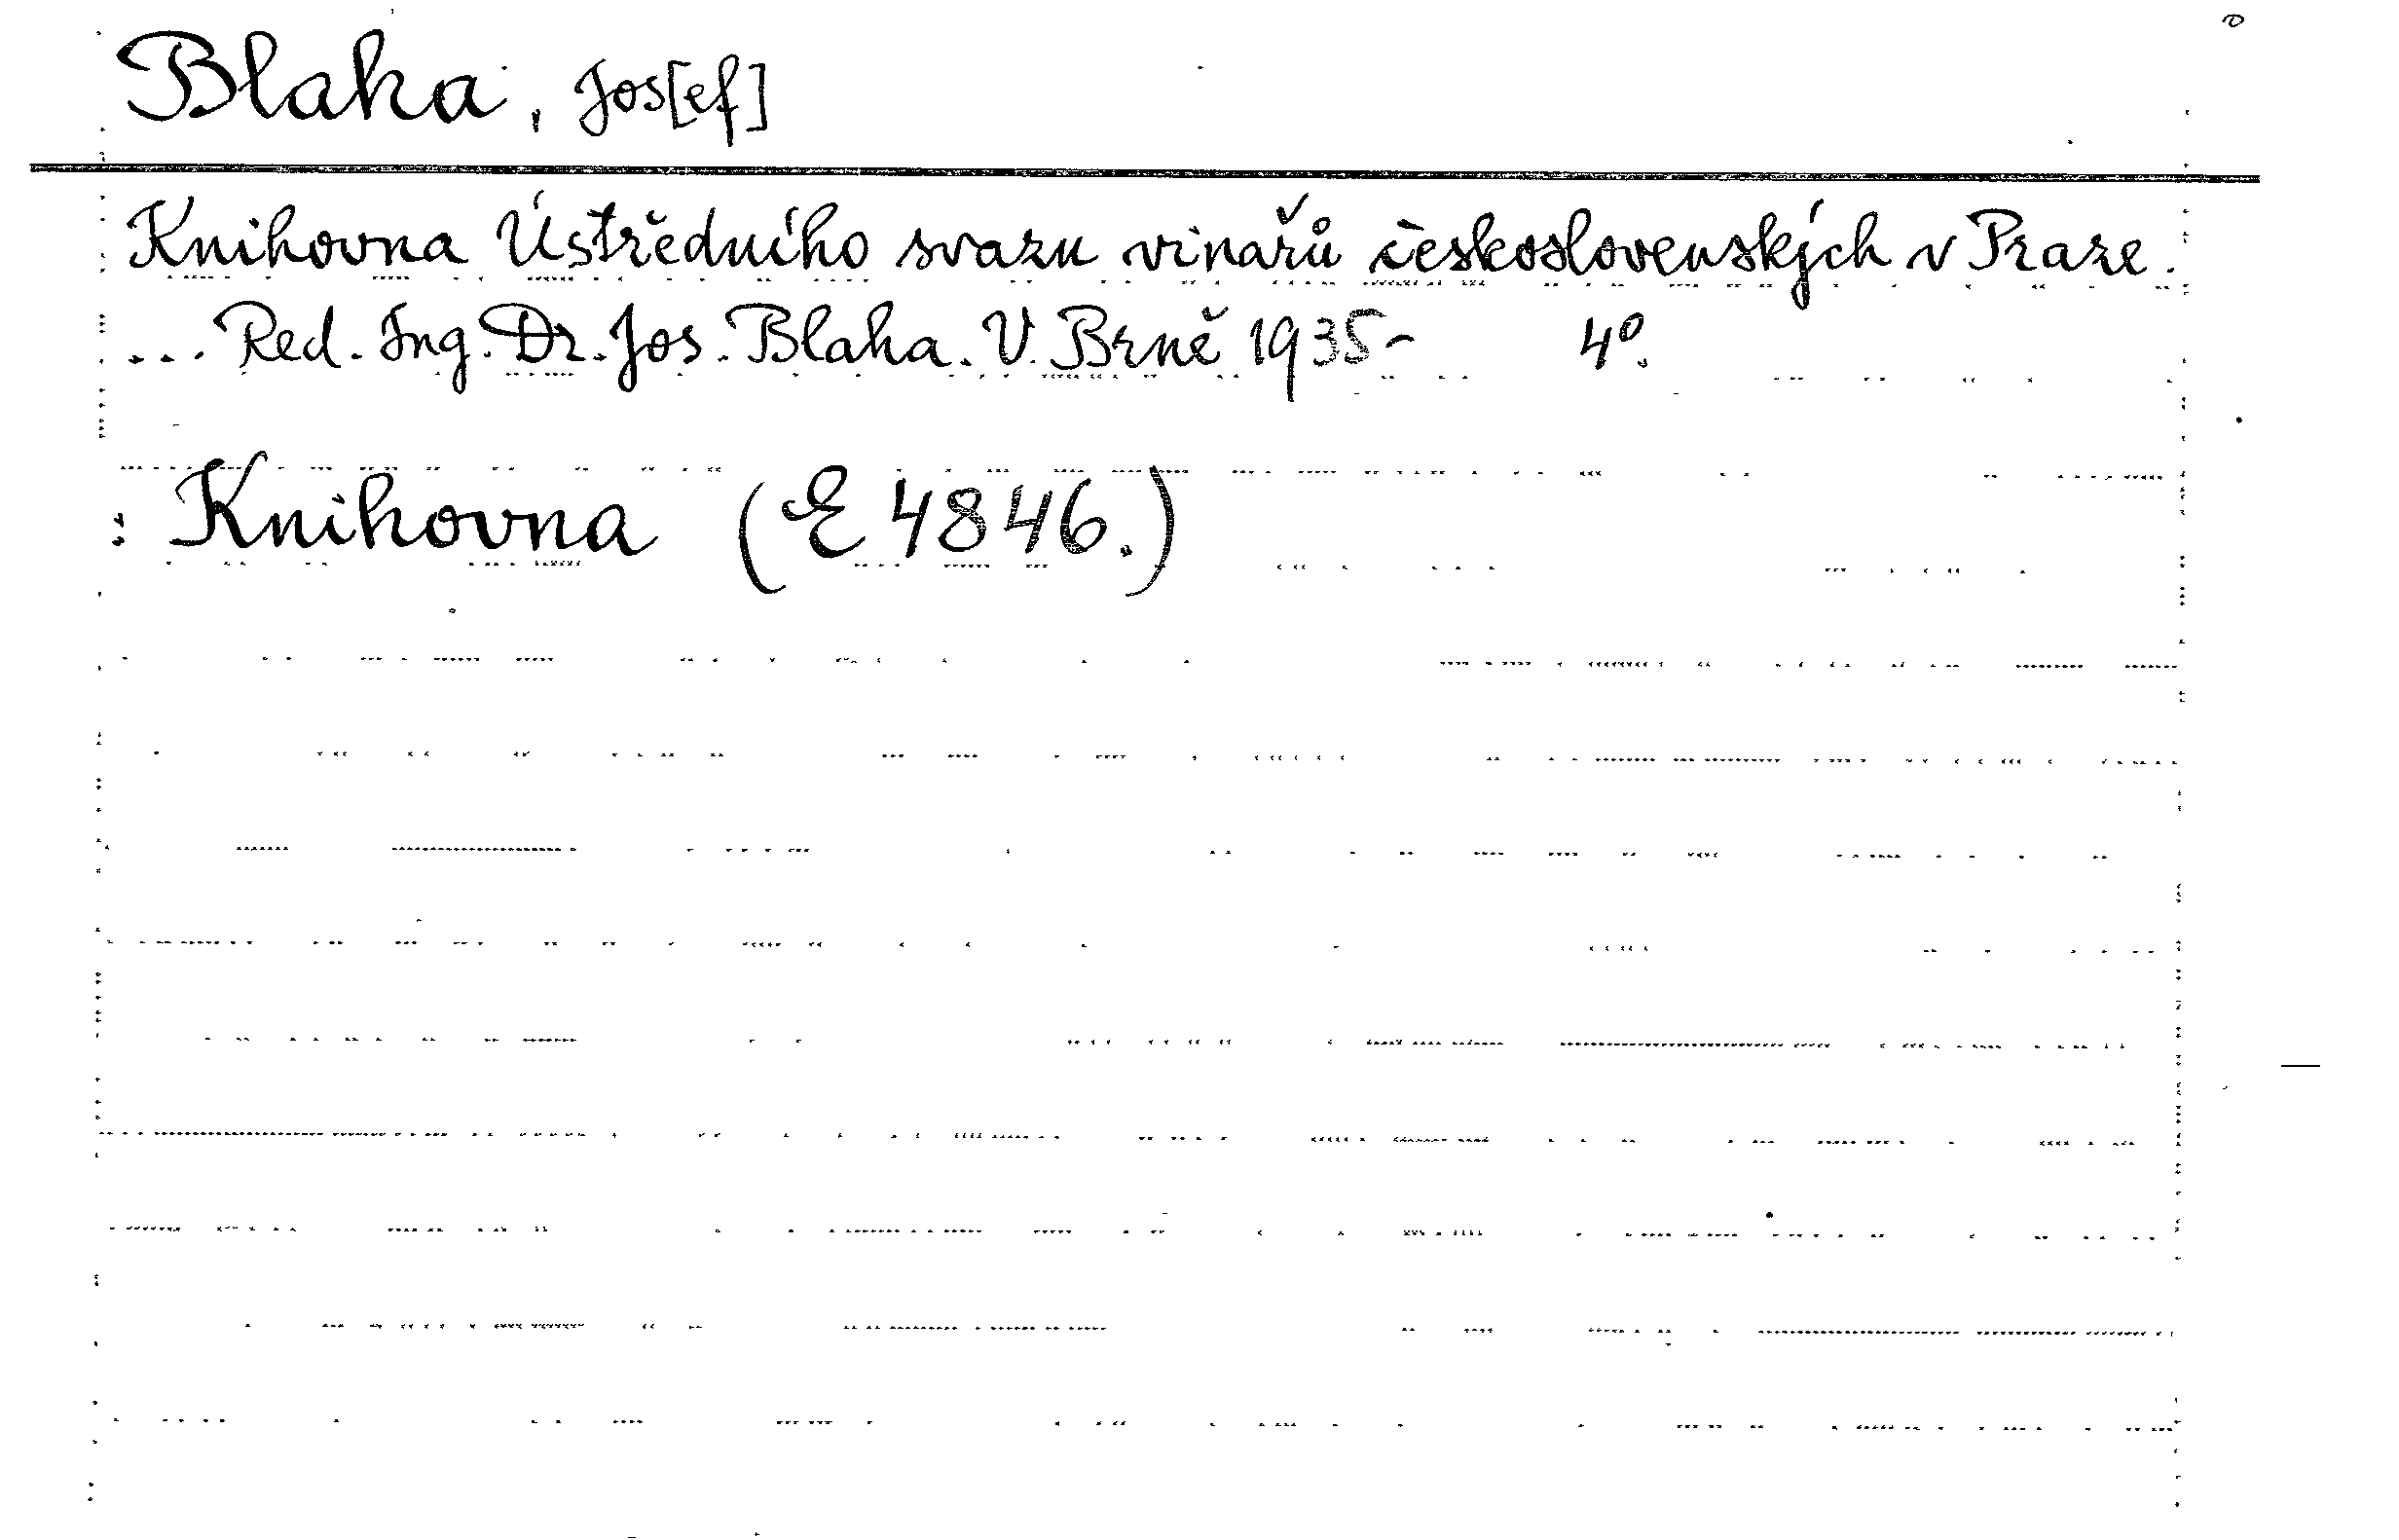 Blaha, Jos[ef]
Knihovna Ústředního svazu vinařů československých v Praze.
... Red. Ing. Dr. Jos. Blaha. V Brně 1935- 4º.
: Knihovna (E 4846.)